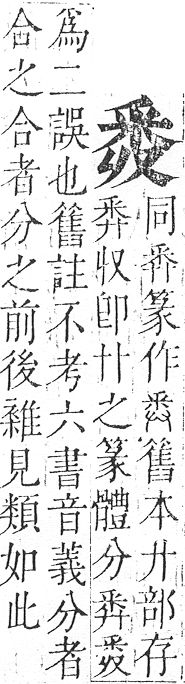 同𢍏篆作舊本廾部存
𢍏収卽廾之篆體分𢍏
爲二誤也舊註不考六書音義分者
合之合者分之前後雜見類如此